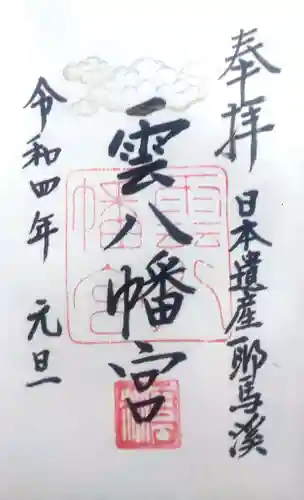 奉拝
日本遺産耶馬溪
雲八幡宮
令和四年 元旦
雲八
幡宮